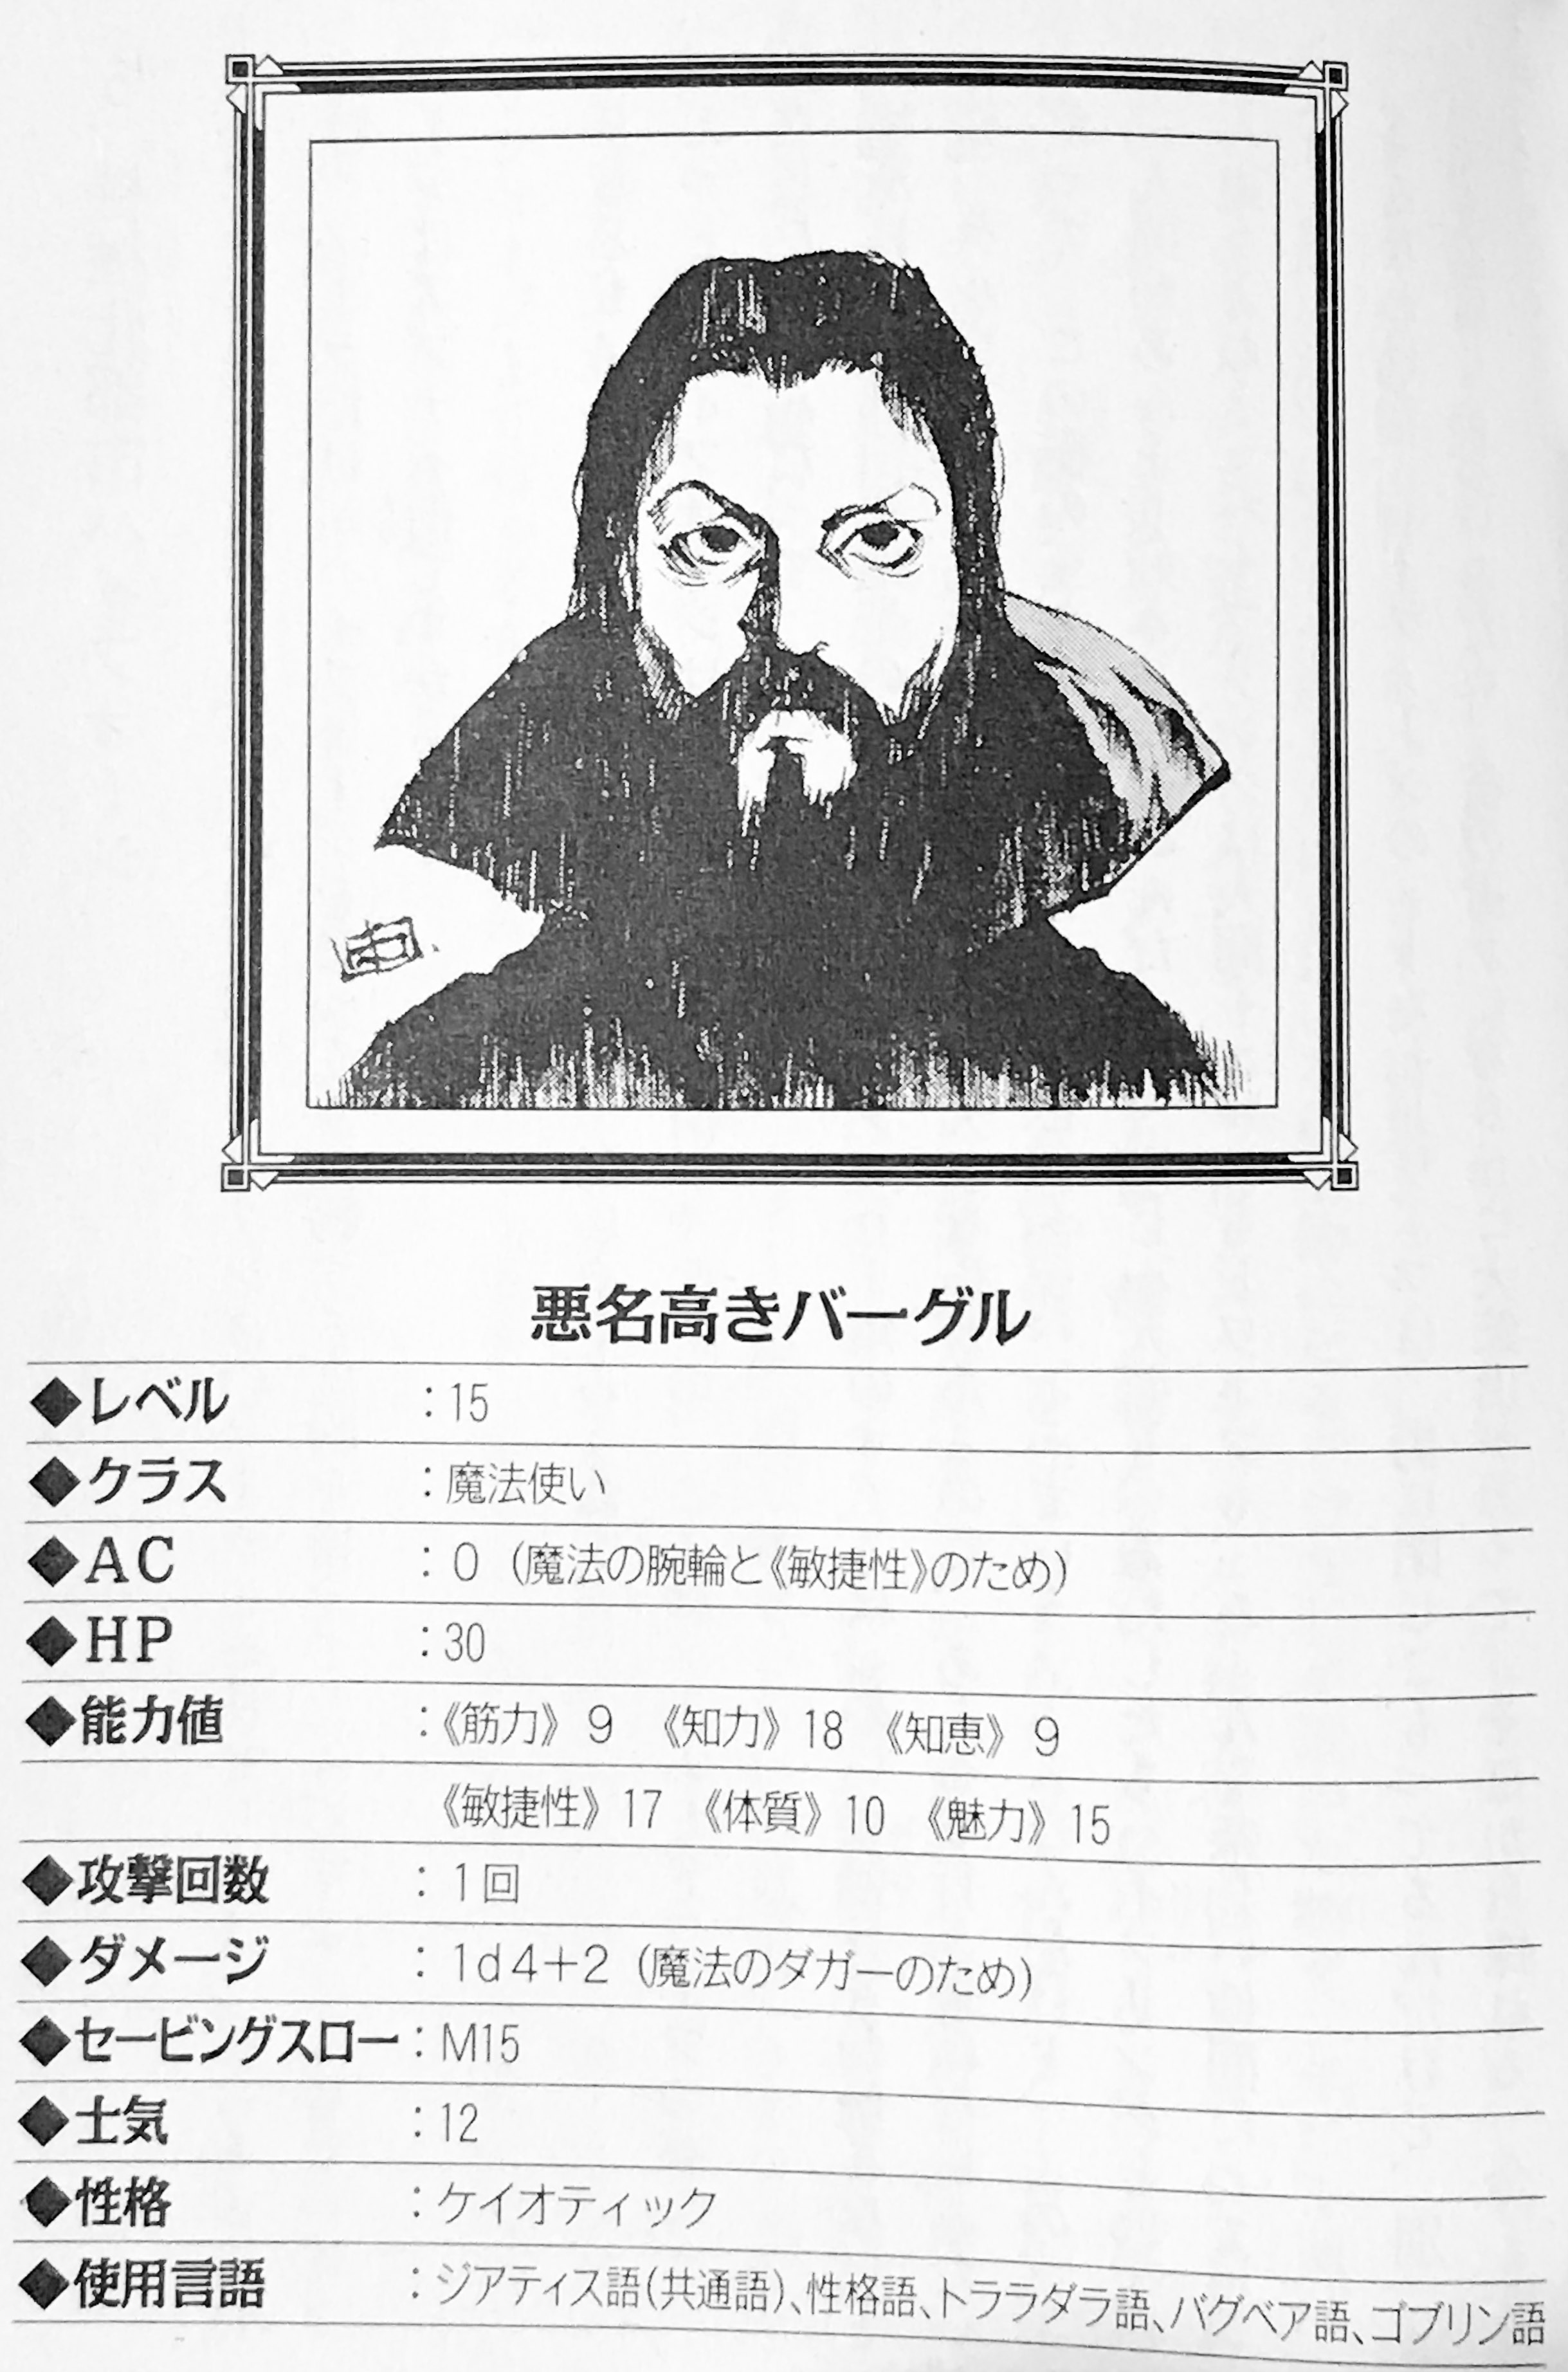 悪名高きバーグル
◆レベル：15
◆クラス：魔法使い
◆AC：0（魔法の腕輪と《敏捷性》のため）
◆HP：30
◆能力値：《筋力》9　《知力》18　《知恵》9
《敏捷性》17　《体質》10　《魅力》15
◆攻撃回数：1回
◆ダメージ：1d4＋2（魔法のダガーのため）
◆セービングスロー：M15
◆士気：12
◆性格：ケイオティック
◆使用言語：ジアティス語（共通語）、性格語、トララダラ語、バグベア語、ゴブリン語